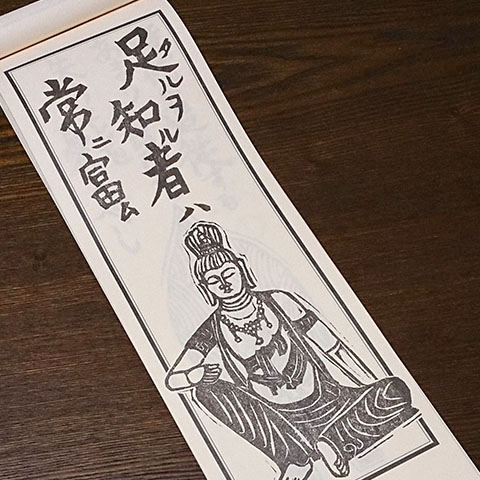 足ルヲ知ル者ハ
常ニ富ム